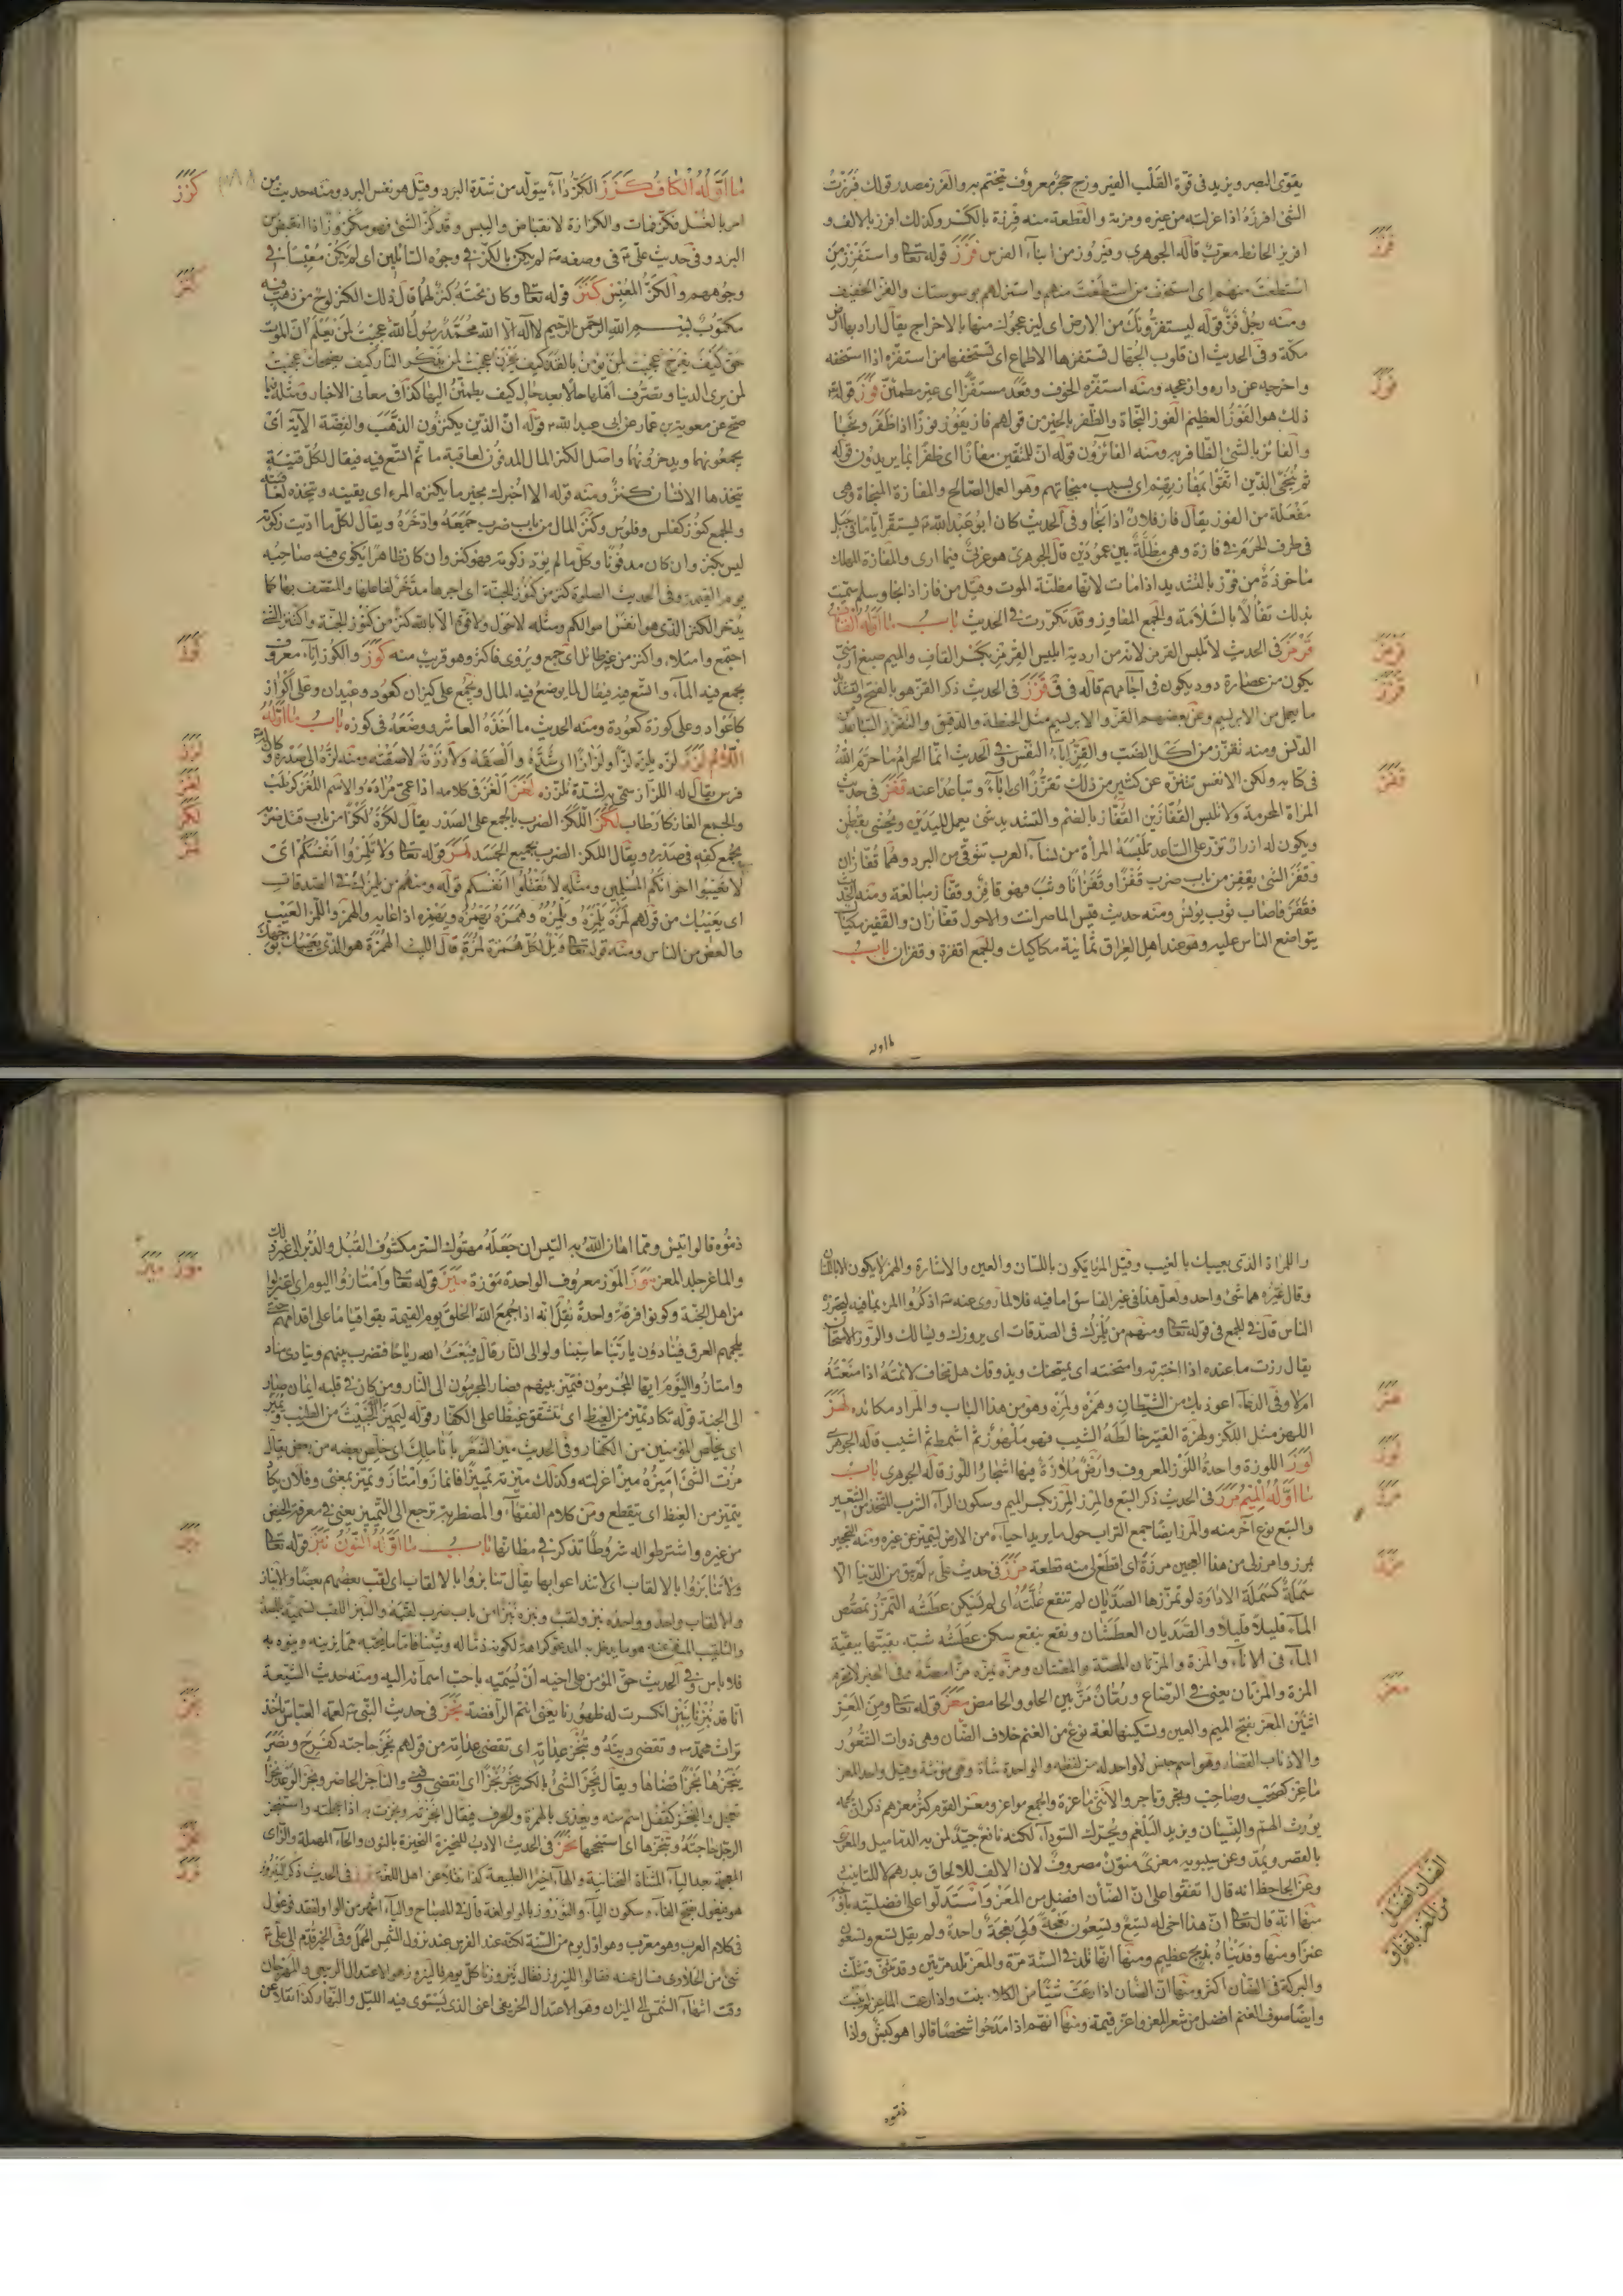 يقوى البصر ويزيد فى قوة القلب الفيروزج حجر معروف يتختم به والفرز مصدر قولك فرزت
الشئ افرزه اذا عزلته من غيره ومزته والقطعة منه فرزة بالكسر وكذلك افرزته بالالف و
افريز الحائط معرب قاله الجوهرى وفيروز من ابناء الفرس فزز قوله تعالى واستفزز من
استطعت منهم اى استخف من استطعت منهم واستزلهم بوسوستك والفز الخفيف
ومنه رجل فز قوله ليستفزونك من الارض اى ليزعجوك منها بالاخراج يقال اراد بها ارض
مكة وفى الحديث ان قلوب الجهال تستفزها الاطماع اى تستخفها من استفزه اذا استخفه
واخرجه عن داره وازعجه ومنه استفزه الخوف وقعد مستفزا اى غير مطمئن فوز قوله تعالى
ذلك هو الفوز العظيم الفوز النجاة والظفر بالخير من قولهم فاز يفوز فوزا اذا ظفر ونجا
والفائز بالشئ الظافر به ومنه الفائزون قوله ان للمتقين مفازا اى ظفرا بما يريدون قوله
ثم ننجى الذين اتقوا بمفازتهم اى بسبب منجاتهم وهو العمل الصالح والمفازة المنجاة وهى
مفعلة من الفوز يقال فاز فلان اذا نجا وفى الحديث كان ابو عبد الله
فى طرف الحرم فى فازة وهو مظلة بين عمودين قال الجوهرى هو عربى فيما ارى والمفازة المهلك
ماخوذة من فوز بالتشديد اذا مات لانها مظنة الموت وقيل من فاز اذا نجا وسلم سميت
بذلك تفألا بالسلامة والجمع المفاوز وقد تكررت فى الحديث باب ما اوله القاف
قرمز فى الحديث لا تلبس القرمز لانه من اردية ابليس القرمز بكسر القاف والميم صبغ ارمنى
يكون من عصارة دود يكون فى آجامهم قاله فى ق قزز فى الحديث ذكر القز هو بالفتح والتشديد
ما يعمل من الابريسم وعن بعضهم القز والابريسم مثل الحنطة والدقيق والتقزز التباعد من
الدنس ومنه تقزز من اكل الضب والقز اباء النفس وفى الحديث انما الحرام ما حرم الله
فى كتابه ولكن الانفس تتنزه عن كثير من ذلك تقززا اى اباء وتباعدا عنه قفز فى حديث
المراة المحرمة ولا تلبس القفازين القفاز بالضم والتشديد شئ يعمل لليدين ويحشى بقطن
ويكون له ازرار تزر على الساعد تلبسه المرأة من نساء العرب تتوقى من البرد وهما قفازان
وقفز الشئ يقفز من باب ضرب قفزا وقفزانا وثب فهو قافز وقفاز مبالغة ومنه الحديث
فقفز فاصاب ثوب يونس ومنه حديث الماصرات والاحول قفازان والقفيز مكيال
يتواضع الناس عليه وهو عند اهل العراق ثمانية مكاكيك والجمع اقفزة وقفزان باب
ما اوله
فزز
فوز
قرمز
قزز
قفز
ما اوله الكاف كزز الكزاز داء يتولد من شدة البرد وقيل هو نفس البرد ومنه حديث من
امر بالغسل فكز فمات والكزازة الانقباض واليبس وقد كز الشئ فهو مكزوز اذا انقبض من
البرد وفى حديث على فى وصفه لم يكن بالكز فى وجوه السائلين اى لم يكن معبسا فى
وجوههم والكز المعبس كنز قوله تعالى وكان تحته كنز لهما قال ذلك الكنز لوح من ذهب فيه
مكتوب بسم الله الرحمن الرحيم لا اله الا الله محمد رسول الله عجبت لمن يعلم ان الموت
حق كيف يفرح عجبت لمن يؤمن بالقدر كيف يحزن عجبت لمن يذكر النار كيف يضحك عجبت
لمن يرى الدنيا وتصرف اهلها حالا بعد حال كيف يطمئن اليها كذا فى معانى الاخبار ومثله
صح عن معوية بن عمار عن ابى عبد الله قوله ان الذين يكنزون الذهب والفضة الآية اى
يجمعونها ويدخرونها واصل الكنز المال المدفون لعاقبة ما ثم اتسع فيه فيقال لكل قنية
يتخذها الانسان كنز ومنه قوله الا اخبرك بخير ما يكنزه المرء اى يقتنيه ويتخذه
والجمع كنوز كفلس وفلوس وكنز المال من باب ضرب جمعه وادخره ويقال لكل ما اديت زكوته
ليس بكنز وان كان مدفونا وكل ما لم يؤد زكوته فهو كنز وان كان ظاهرا يكوى به صاحبه
يوم القيمة وفى الحديث كنز من كنوز الجنة اى اجرها مدخر لفاعلها والمتصف بها كما
يدخر الكنز الذى هو انفس اموالكم ومثله لا حول ولا قوة الا بالله كنز من كنوز الجنة واكتنز الشئ
اجتمع وامتلاء واكنز من غير طائل اى جمع ويروى فاكثر وهو قريب منه كوز والكوز اناء معروف
يجمع فيه الماء واتسع فيه فيقال لما يوضع فيه المال ويجمع على كيزان كعود وعيدان وعلى اكواز
كاعواد وعلى كوزة كعودة ومنه الحديث ما اخذه العاشر ووضعه فى كوزه باب ما اوله
اللام لزز لزه يلزه لزا ولزازا اى شده والصقه ولاززته لاصقته ومنه لزه الى صدره وكان له
فرس يقال له اللزاز سمى به لشدة تلززه لغز الغز فى كلامه اذا عمى مراده والاسم اللغز كرطب
والجمع الغاز كارطاب لكز اللكز الضرب بالجمع على الصدر يقال لكزه لكزا من باب قتل ضربه
بجمع كفه فى صدره ويقال اللكز الضرب بجميع الجسد لمز قوله تعالى ولا تلمزوا انفسكم اى
لا تعيبوا اخوانكم المسلمين ومثله لا تقتلوا انفسكم قوله ومنهم من يلمزك فى الصدقات
اى يعيبك من قولهم لمزه يلمزه ويلمزه وهمزه يهمزه ويهمزه اذا عابه والهمز واللمز العيب
والغض من الناس ومنه قوله تعالى ويل لكل همزة لمزة قال الليث الهمزة هو الذى يعيبك بوجهك
كزز
كنز
كوز
لزز
لغز
لكز
لمز
واللمزة الذى يعيبك بالغيب وقيل اللمز يكون باللسان والعين والاشارة والهمز لا يكون الا باللسان
وقال غيره هما شئ واحد ولعل هذا فى غير الفاسق اما فيه فلا لما روى عنه اذكروا المرء بما فيه ليحذره
الناس قال فى المجمع فى قوله تعالى ومنهم من يلمزك فى الصدقات اى يروزك ويسالك والروز الامتحان
يقال رزت ما عنده اذا اختبرته وامتحنته اى يمتحنك ويذوقك هل تخاف لائمته اذا منعته
ام لا وفى الدعاء اعوذ بك من الشيطان وهمزه ولمزه وهو من هذا الباب والمراد مكائده لهز
اللهز مثل اللكز ولهزة القتير خالطه الشيب فهو ملهوز ثم اشمط ثم اشيب قاله الجوهرى
لوز اللوزة واحدة اللوز المعروف وارض ملازة فيها اشجار اللوز قاله الجوهرى باب
ما اوله الميم مرز فى الحديث ذكر البتع والمزر المزر بكسر الميم وسكون الراء الشرب المتخذ من الشعير
والبتع نوع آخر منه والمرز ايضا جمع التراب حول ما يريد احياءه من الارض ليتميز عن غيره ومنه التحجير
بمرز وامرز لى من هذا العجين مرزة اى اقطع لى منه قطعة مزز فى حديث على لم يبق من الدنيا الا
سملة كسملة الاداوة لو تمززها الصديان لم تنقع غلته اى لم يسكن عطشه التمزز تمصص
الماء قليلا قليلا والصديان العطشان ونقع ينقع سكن عطشه شبه بقيتها ببقية
الماء فى الاناء والمزة والمزتان المصة والمصتان ومزه يمزه مزا مصه وفى الخبر لا تحرم
المزة والمزتان يعنى فى الرضاع ورمان مز بين الحلو والحامض معز قوله تعالى ومن المعز
اثنين المعز بفتح الميم والعين وتسكينها لغة نوع من الغنم خلاف الضان وهى ذوات الشعور
والاذناب القصار وهو اسم جنس لا واحد له من لفظه والواحدة شاة وهى مؤنثة وقيل واحد المعز
ماعز كصحب وصاحب وتجر وتاجر والانثى ماعزة والجمع مواعز ومعز القوم كثر معزهم
يورث الهم والنسيان ويزيد البلغم ويحرك السوداء لكنه نافع جيد لمن به الدماميل والمعزى
بالقصر ويمد وعن سيبويه معزى منون مصروف لان الالف للالحاق بدرهم لا للتانيث
وعن الجاحظ انه قال اتفقوا على ان الضأن افضل من المعز واستدلوا على افضليته
منها انه قال تعالى ان هذا اخى له تسع وتسعون نعجة ولى نعجة واحدة ولم يقل تسع وتسعون
عنزا ومنها وفديناه بذبح عظيم ومنها انها تلد فى السنة مرة والمعز تلد مرتين وقد تثنى وتثلث
والبركة فى الضان اكثر ومنها ان الضان اذا رعت شيئا من الكلاء ينبت واذا رعت الماعز لم ينبت
وايضا صوف الغنم افضل من شعر المعز واعز قيمة ومنها انهم اذا مدحوا شخصا قالوا هو كبش واذا
ذموه
لهز
لوز
مرز
مزز
معز
الضان افضل
من المعز باتفاق
ذموه قالوا تيس ومما اهان الله به التيس ان جعله مهتوك الستر مكشوف القبل والدبر الى غير ذلك
والماعز جلد المعز موز الموز معروف الواحدة موزة ميز قوله تعالى وامتازوا اليوم اى اعتزلوا
من اهل الجنة وكونوا فرقة واحدة نقل انه اذا جمع الله الخلق يوم القيمة بقوا قياما على اقدامهم حتى
يلجمهم العرق فينادون يا ربنا حاسبنا ولو الى النار قال فيبعث الله رياحا فتضرب بينهم وينادى مناد
وامتازوا اليوم ايها المجرمون فتميز بينهم فصار المجرمون الى النار ومن كان فى قلبه ايمان صار
الى الجنة قوله تكاد تميز من الغيظ اى تتشقق غيظا على الكفار وقوله ليميز الخبيث من الطيب ويميز
اى يخلص المؤمنين من الكفار وفى الحديث ميز الشعر باناملك اى خلص بعضه من بعض يقال
مزت الشئ اميزه ميزا عزلته وكذلك ميزته تمييزا فانماز وامتاز وتميز بمعنى وفلان يكاد
يتميز من الغيظ اى يتقطع ومن كلام الفقهاء والمضطربة ترجع الى التمييز يعنى فى معرفة الحيض
من غيره واشترطوا له شروطا تذكر فى مظانها باب ما اوله النون نبز قوله تعالى
ولا تنابزوا بالالقاب اى لا تتداعوا بها يقال تنابزوا بالالقاب اى لقب بعضهم بعضا والانباز
والالقاب واحد وواحده نبز ولقب ونبزه نبزا من باب ضرب لقبه والنبز اللقب تسمية بالمصدر
فلا باس وفى الحديث حق المؤمن على اخيه ان يسميه باحب اسمائه اليه ومنه حديث الشيعة
انا قد نبزنا بنبز انكسرت له ظهورنا يعنى انتم الرافضة نجز فى حديث النبى لعمه العباس تاخذ
تراث محمد وتقضى دينه وتنجز عداته اى تقضى عداته من قولهم نجز حاجته كفرح ونصر
ينجزها نجزا قضاها ويقال نجز الشئ بالكسر ينجز نجزا اى انقضى وفنى والناجز الحاضر ونجز الوعد نجزا
تعجل والنجز كقفل اسم منه ويعدى بالهمزة والحرف فيقال انجزته ونجزت به اذا عجلته واستنجز
الرجل حاجته وتنجزها اى استنجحها نحز فى الحديث الادب النحيزة النحيزة بالنون والحاء المهملة والزاى
المعجمة بعد الياء المثناة التحتانية والهاء اخيرا الطبيعة كذا نقلا عن اهل اللغة نرز فى الحديث ذكر النيروز
هو فيعول بفتح الفاء وسكون الياء والنوروز بالواو لغة قال فى المصباح والياء اشهر من الواو لفقد فوعول
فى كلام العرب وهو معرب وهو اول يوم من السنة لكنه عند الفرس عند نزول الشمس الحمل وفى الخبر قدم الى على
شئ من الحلاوى فسال عنه فقالوا للنيروز فقال نيروزنا كل يوم
وقت انتهاء الشمس الى الميزان وهو الاعتدال الخريفى اعنى الذى يستوى فيه الليل والنهار كذا نقلا عن
موز ميز
نبز
نجز
نحز
نرز